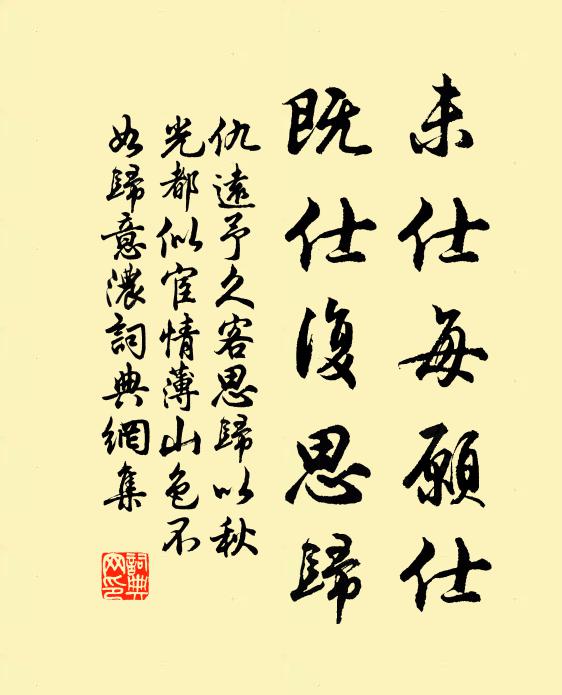 未仕每願仕
既仕復思歸
仇遠予久客思歸以秋
光都似宦情薄山色不
如歸意濃詞典網集
詞典
网印